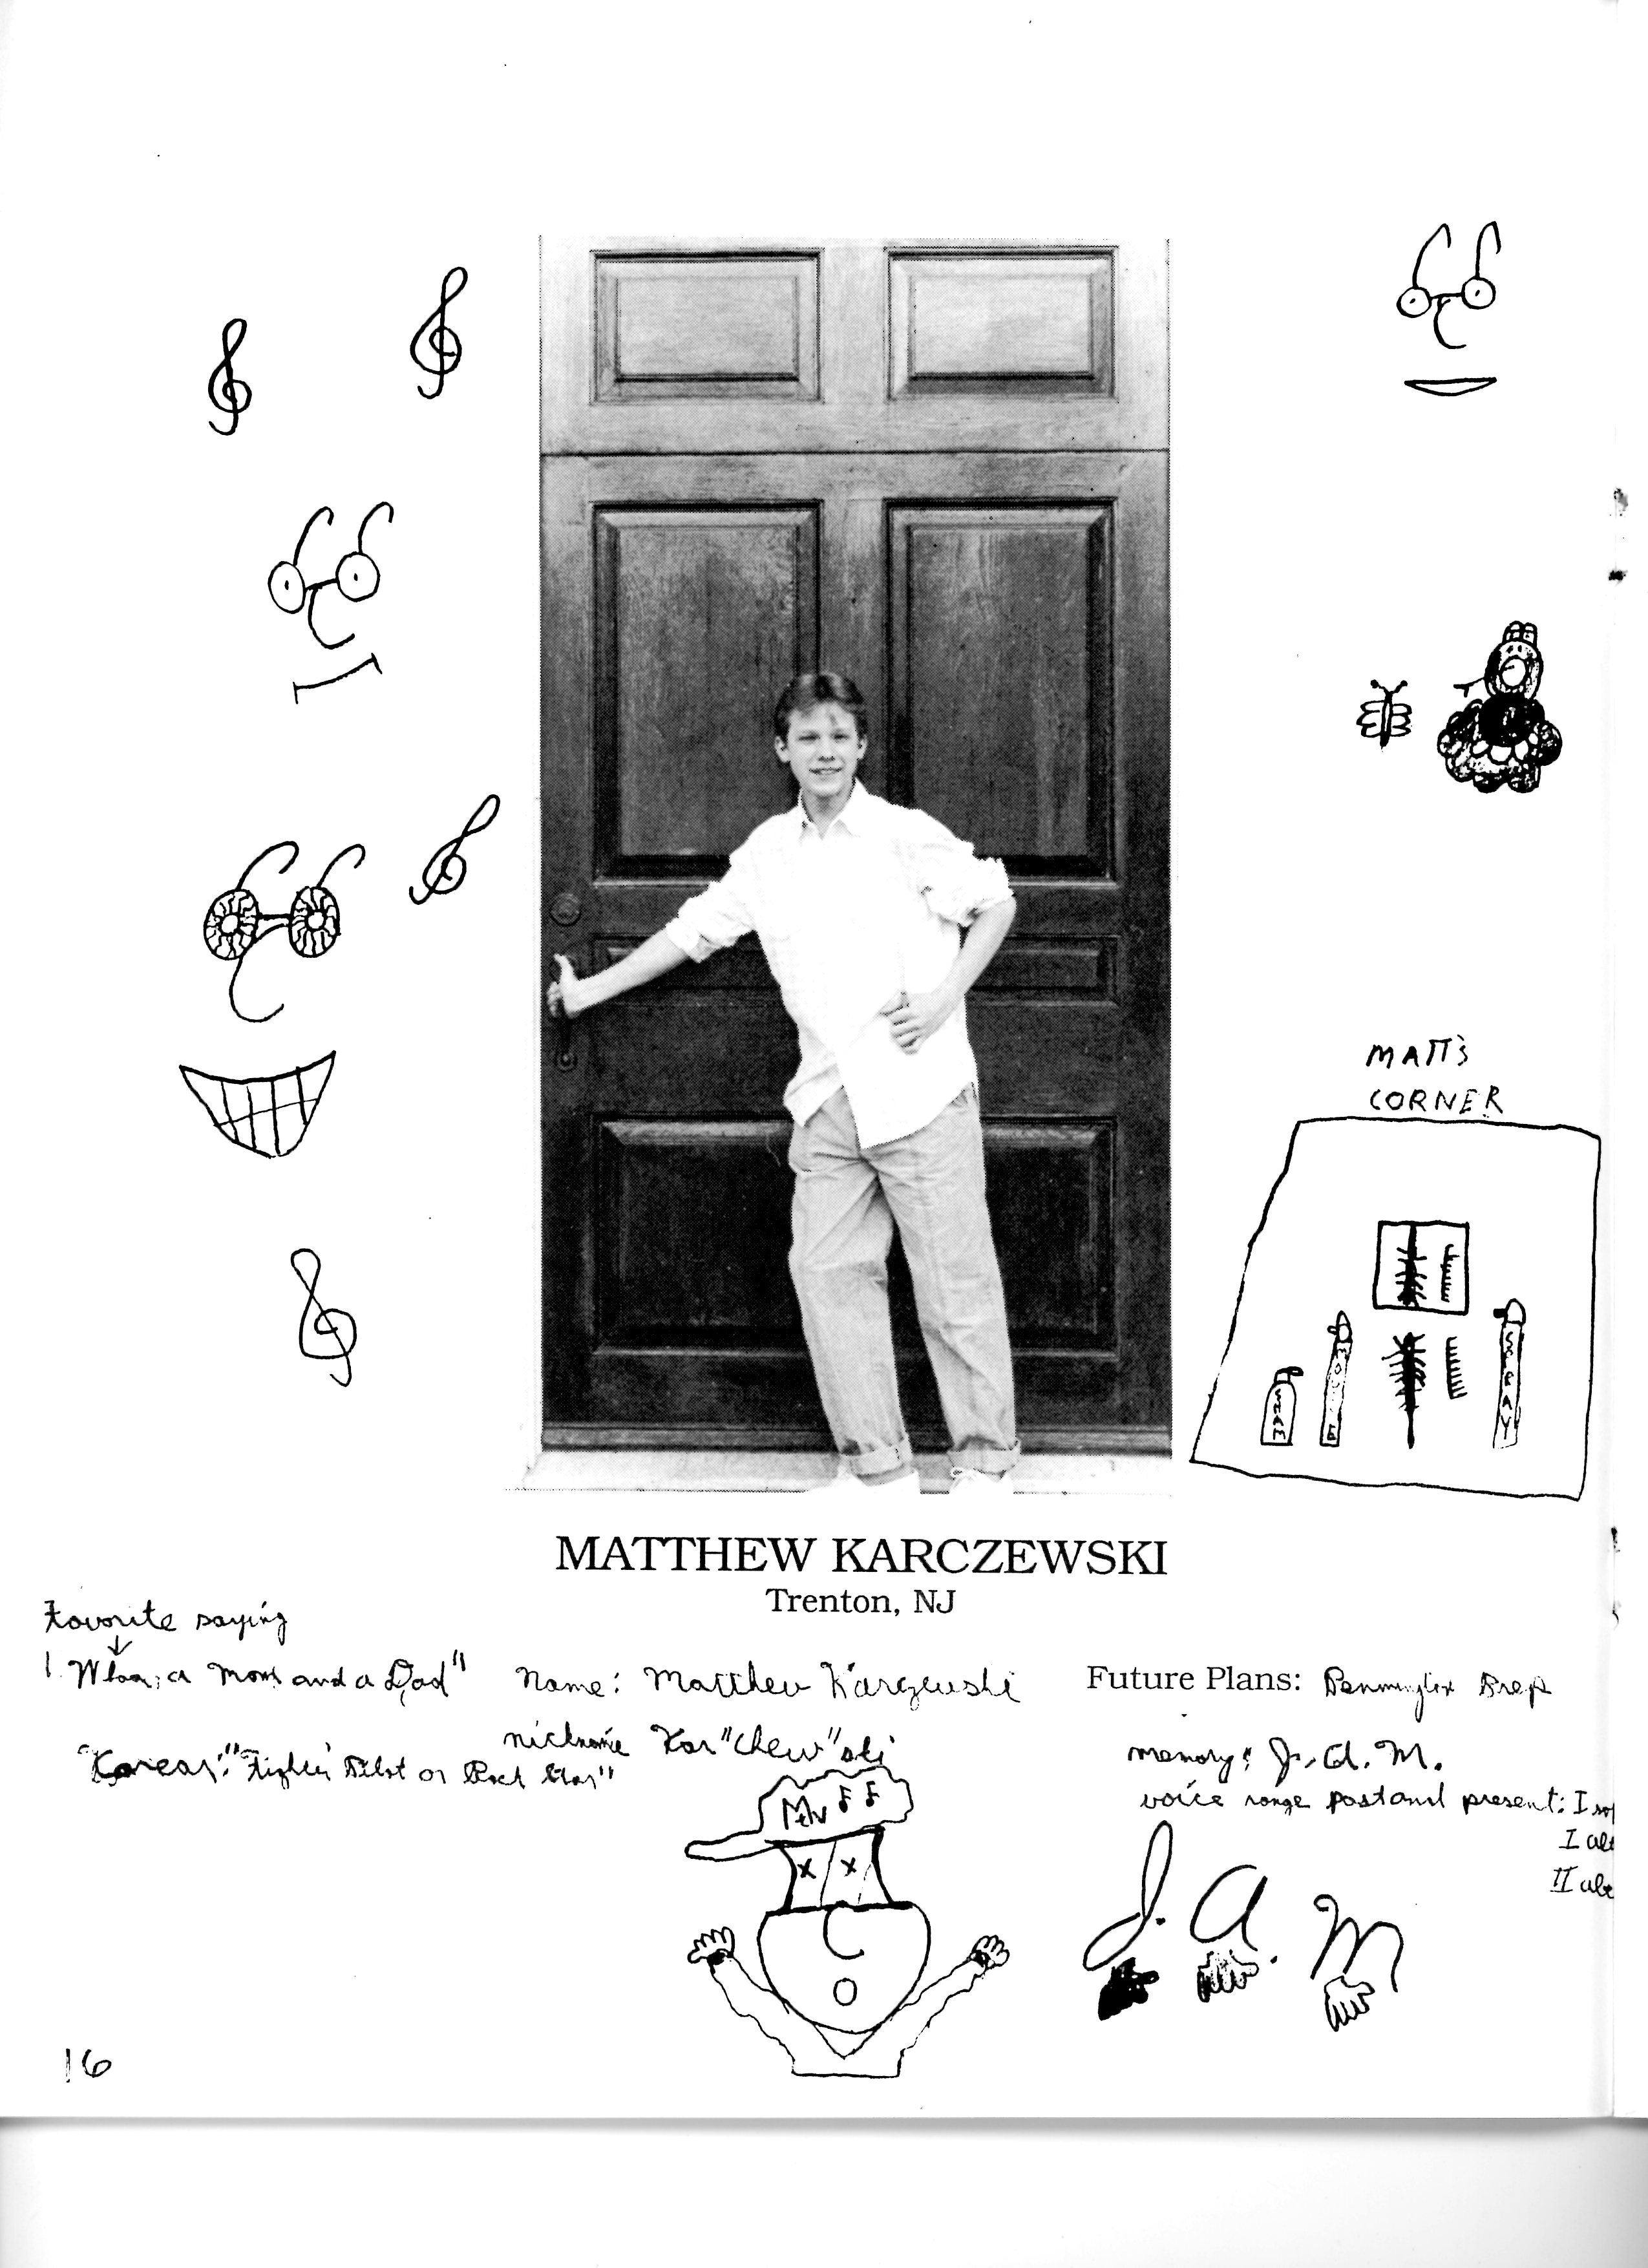 MATT'S
CORNER
MOUSSE
SPRAY
MATTHEW KARCZEWSKI
Trenton, NJ
Favorite saying
1. "Whoa, a Mom and a Dad"
Name: Matthew Karczewski
Future Plans: Pennington Prep
nickname Kar"chew"ski
"Career:" "Fighter Pilot or Rock Star"
memory: J. A. M.
voice range past and present: I
I
II
Mtv
J. A. M
16